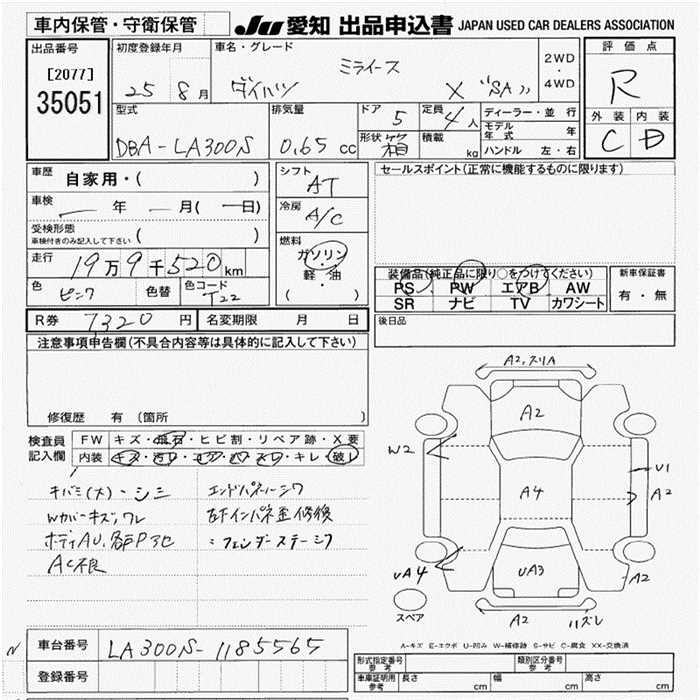 車内保管・守衛保管
JU 愛知 出品申込書 JAPAN USED CAR DEALERS ASSOCIATION
出品番号
[2077]
35051
初度登録年月
25 8月
車名・グレード
ダイハツ ミライース X "SA"
2WD
・
4WD
評価点
R
外装 内装
C D
型式
DBA-LA300S
排気量
0.65 cc
ドア
5
定員
4人
形状
箱
積載
kg
ディーラー・並行
モデル年式 年
ハンドル 左・右
車歴
自家用・( )
車検
年 月( 日)
受検形態
車検付きのみ記入して下さい ( )
走行
19万9千520km
色
ピンク
色替
色コード
T22
シフト
AT
冷房
A/C
燃料
ガソリン・
軽・油
( )
セールスポイント(正常に機能するものに限ります)
装備品(純正品に限り○をつけてください)
PS PW エアB AW
SR ナビ TV カワシート
新車保証書
有・無
R券 7320円
名変期限 月 日
後日品
注意事項申告欄(不具合内容等は具体的に記入して下さい)
修復歴 有 (箇所 )
検査員
記入欄
FW キズ・飛石・ヒビ割・リペア跡・X要
内装 キレ・破レ
キバミ(大)・シミ
Wカバーキズ,ワレ
AC不良
エンドパネハーシワ
A2,スリA
A2
W2
A4
U1
A2
UA4
UA3
A2
A2 ハズレ
スペア
A-キズ E-エクボ U-凹み W-補修跡 S-サビ C-腐食 XX-交換済
N
車台番号 LA300S-1185565
登録番号
形式指定番号
参考
類別区分番号
参考
車庫証明用
参考
長さ cm
幅 cm
高さ cm